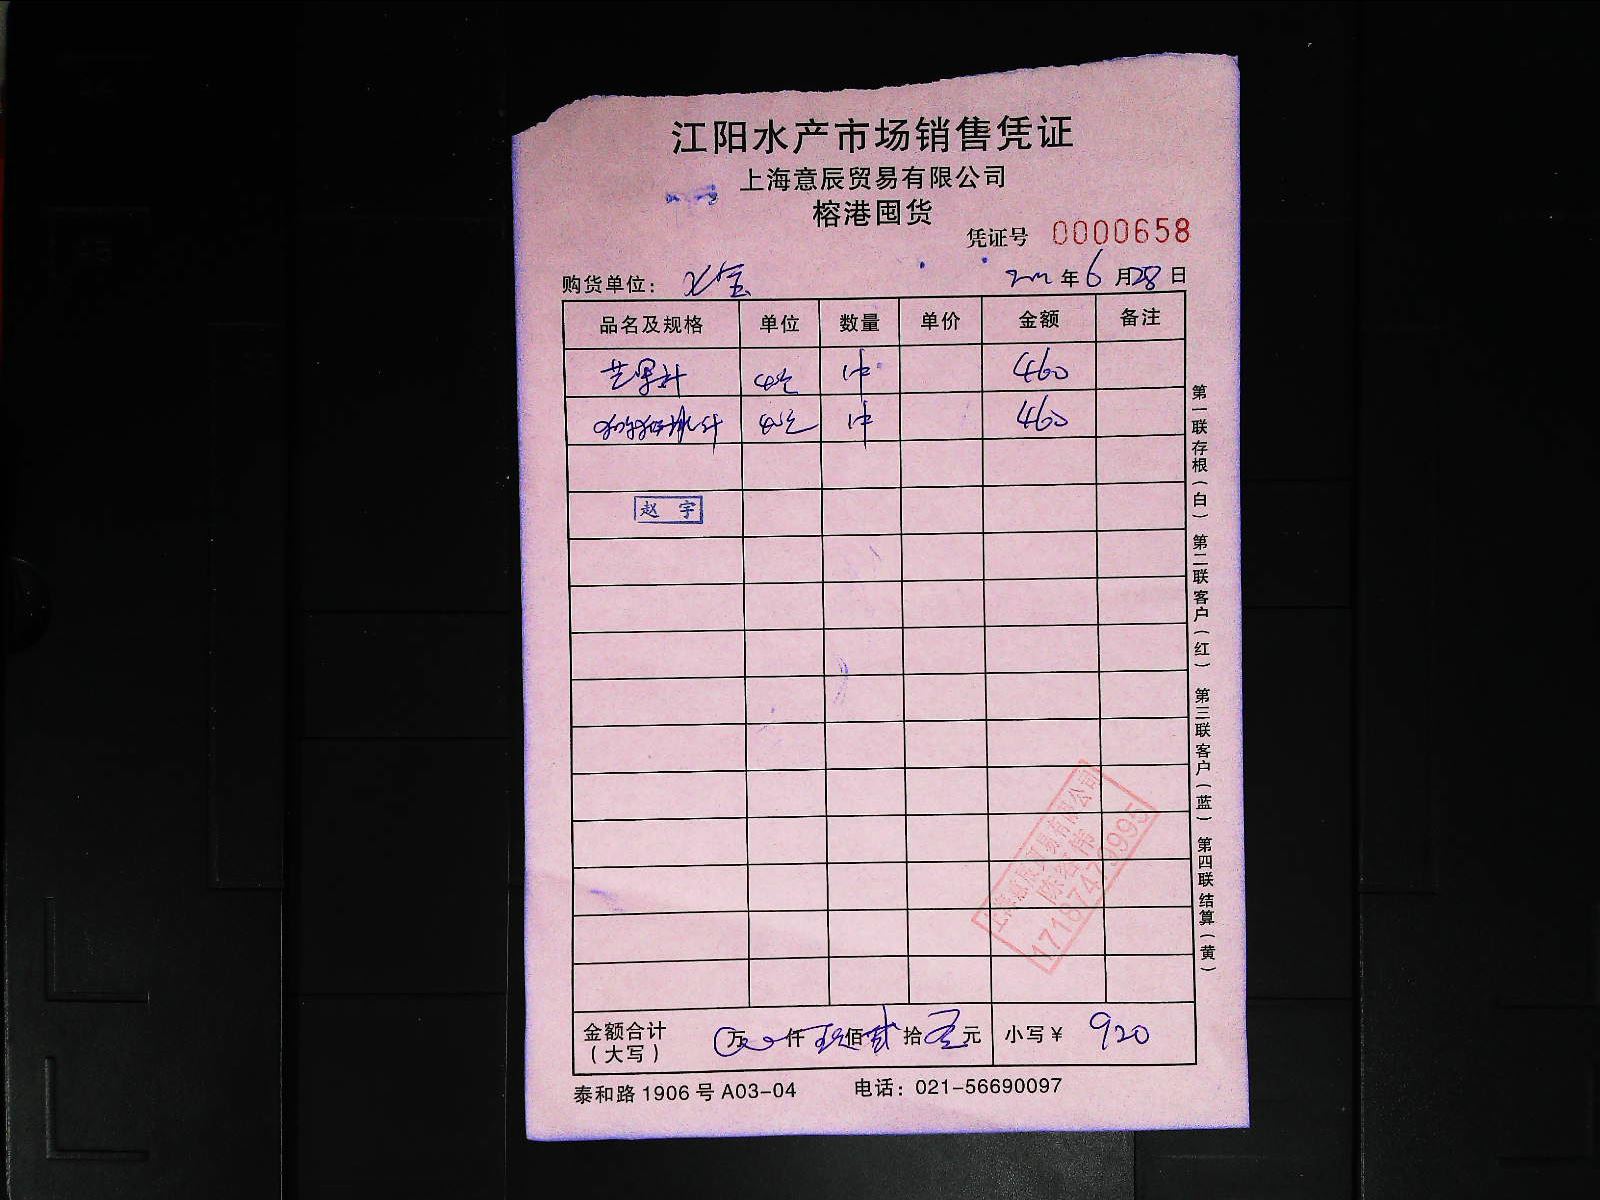 江阳水产市场销售凭证
上海意辰贸易有限公司
榕港囤货
凭证号 0000658
购货单位： 年 6 月 28 日
品名及规格 单位 数量 单价 金额 备注
芒果汁 460
猕猴桃汁 460
赵宇
上海意辰贸易有限公司
17187479995
金额合计（大写） 万 仟 玖佰贰拾 元 小写￥ 920
泰和路1906号A03-04 电话：021-56690097
第一联存根（白） 第二联客户（红） 第三联客户（蓝） 第四联结算（黄）